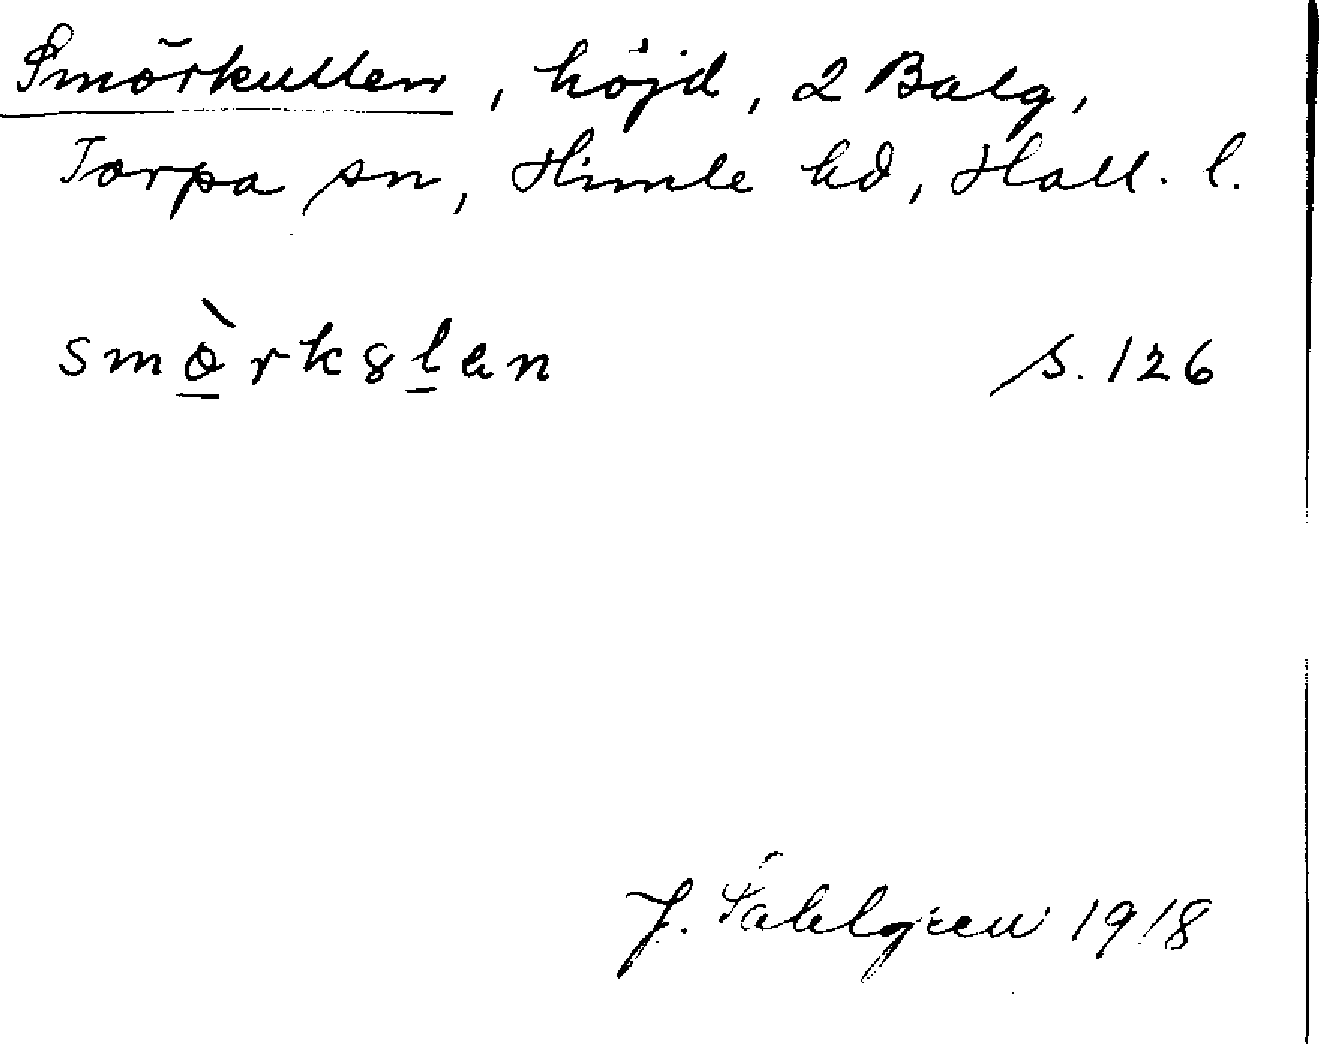 Smörkullen, höjd, 2 Balg,
Torpa sn, Himle hd, Hall. l.
smö̀rk8l̲an s. 126
J. Sahlgren 1918